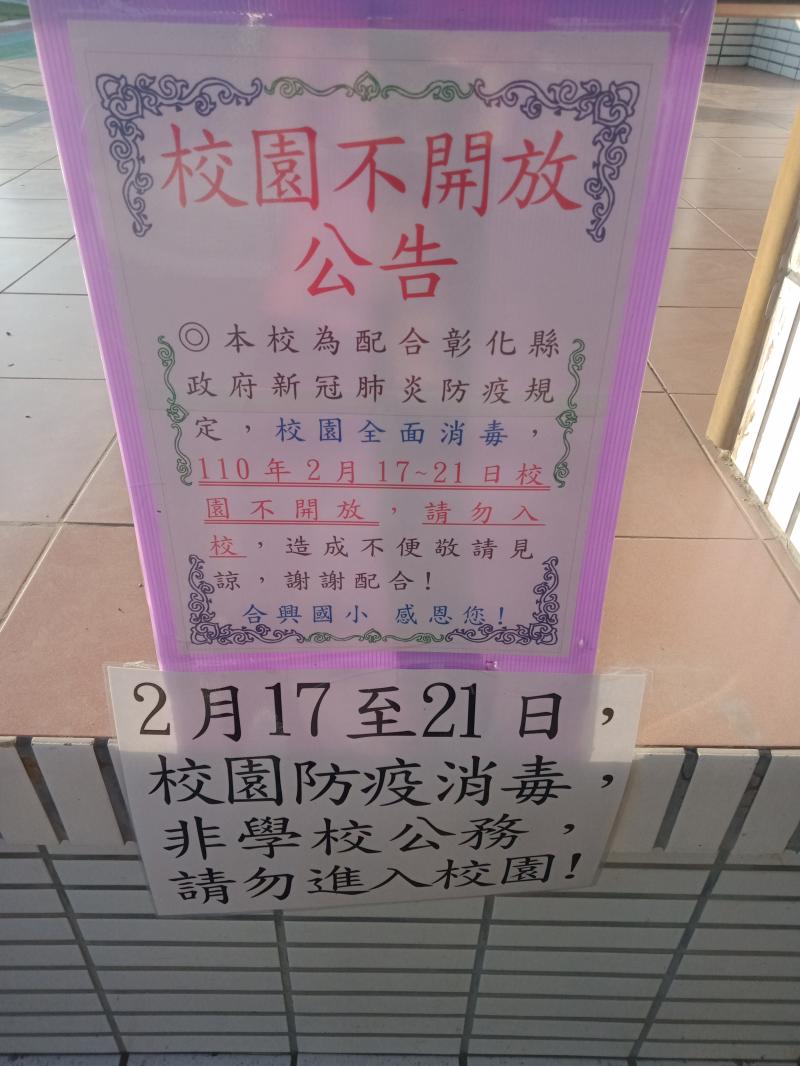 校園不開放
公告
◎本校為配合彰化縣
政府新冠肺炎防疫規
定，校園全面消毒，
110年2月17~21日校
園不開放，請勿入
校，造成不便敬請見
諒，謝謝配合!
合興國小 感恩您!
2月17至21日，
校園防疫消毒，
非學校公務，
請勿進入校園!